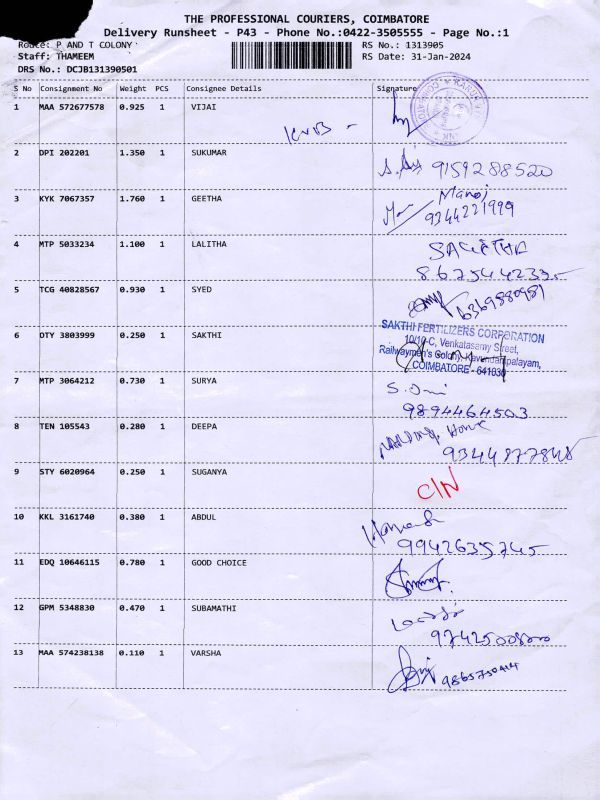 THE PROFESSIONAL COURIERS, COIMBATORE
Delivery Runsheet - P43 - Phone No.:0422-3505555 - Page No.:1
Route: P AND T COLONY RS No.: 1313905
Staff: THAMEEM RS Date: 31-Jan-2024
DRS No.: DCJB131390501
S No Consignment No Weight PCS Consignee Details Signature
1 MAA 572677578 0.925 1 VIJAI
KVB -
2 DPI 202201 1.350 1 SUKUMAR
9159288520
3 KYK 7067357 1.760 1 GEETHA
Manoj
9344221999
4 MTP 5033234 1.100 1 LALITHA
SAGETHA
8675442335
5 TCG 40828567 0.930 1 SYED
6369880981
6 DTY 3803999 0.250 1 SAKTHI
SAKTHI FERTILIZERS CORPORATION
10/10-C, Venkatasamy Street,
Railwaymen's Colony, Kavundampalayam,
COIMBATORE - 641030
7 MTP 3064212 0.730 1 SURYA
9894464503
8 TEN 105543 0.280 1 DEEPA
9344877848
9 STY 6020964 0.250 1 SUGANYA
C/N
10 KKL 3161740 0.380 1 ABDUL
9942635745
11 EDQ 10646115 0.780 1 GOOD CHOICE
12 GPM 5348830 0.470 1 SUBAMATHI
13 MAA 574238138 0.110 1 VARSHA
9865750414